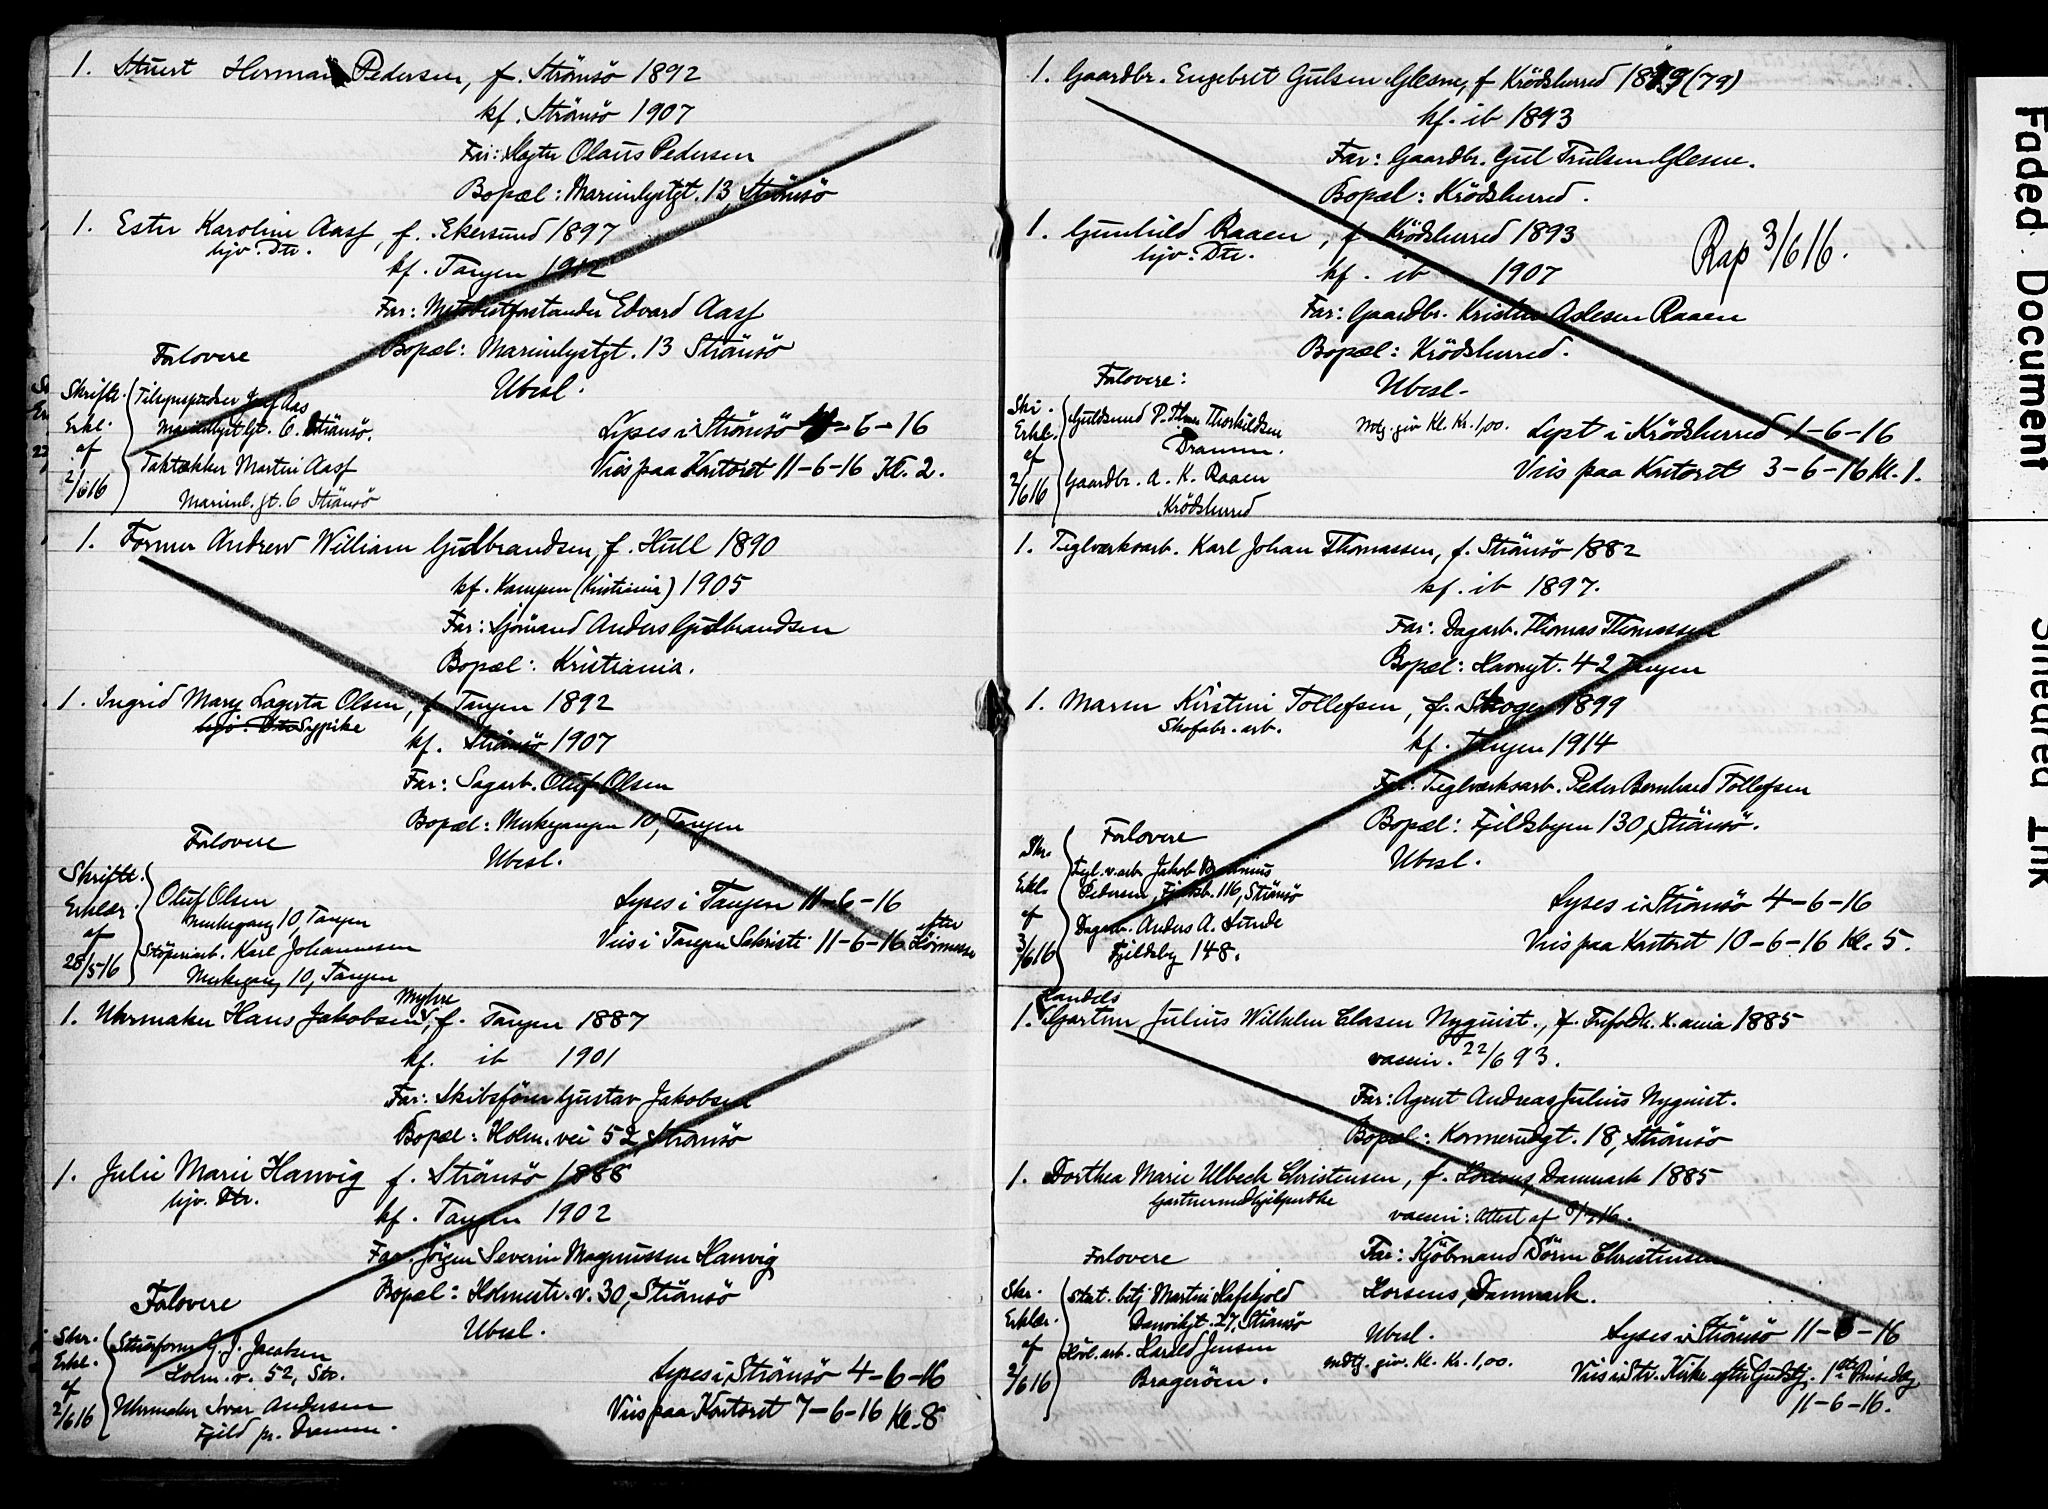 1. Stuert Herman Pedersen, f. Strömsö 1892
kf. Strömsö 1907
Far: Olaus Pedersen
Bopæl: Marienlystgt. 13, Strömsö
1. Ester Karoline Aass, f. Ekersund 1897
hjv. Dtr.
kf. Tangen 1912
Far: Metodistforstander Edvard Aass
Bopæl: Marienlystgt. 13 Strömsö
Forlovere
Ubesl.
Skriftl. Erkl. af 2/6 16
Aas
Marienlystgt. 6. Strömsö.
Taktækker Martin Aass
Marienl. gt. 6 Strömsö
Lyses i Strömsö 4-6-16
Vies paa Kontoret 11-6-16 Kl. 2.
1. Former Andrew William Gulbrandsen, f. Hull 1890
kf. Kampen (Kristiania) 1905
Far: Sjömand Anders Gulbrandsen
Bopæl: Kristiania.
1. Ingrid Mary Lagerta Olsen, f. Tangen 1892
hjv. Dtr. Sypike
kf. Strömsö 1907
Far: Sagarb. Oluf Olsen
Bopæl: 10, Tangen
Forlovere
Ubesl.
Skriftl. Erklær. af 28/5-16
Oluf Olsen
10, Tangen
Störiarb. Karl Johannesen
10, Tangen
Lyses i Tangen 11-6-16
Vies i Tangen Sakristi 11-6-16 efter Höimesse
1. Uhrmaker Hans Jakobsen Myhre, f. Tangen 1887
kf. ib 1901
Far: Skibsförer Gustav Jakobsen
Bopæl: Holm. vei 52, Strömsö
1. Julie Marie Hanvig f. Strömsö 1888
hjv. Dtr.
kf. Tangen 1902
Far: Jörgen Severin Magnussen Hanvig
Bopæl: Holmestr. v. 30, Strömsö
Forlovere
Ubesl.
Skr. Erkl. af 2/6 16
G. J. Jacobsen
Holm. v. 52, Str.
Uhrmaker Ivar Andersen
Fjeld pr. Dramm.
Lyses i Strömsö 4-6-16
Vies paa Kontoret 7-6-16 Kl. 8
1. Gaardbr. Engebret Gulsen Glesne, f Krödsherred 1879 (79)
kf. ib 1893
Far: Gaardbr. Gul Trulsen Glesne.
Bopæl: Krödsherred.
1. Gunhild Raaen, f Krödsherred 1893
hjv. Dtr.
kf. ib 1907
Rap 3/6 16.
Far: Gaardbr. Kristen Aslesen Raaen
Bopæl: Krödsherred.
Forlovere:
Ubesl.
Skr. Erkl. af 2/6 16
Guldsmed P. Thorkildsen
Dramm.
Gaardbr. A. K. Raaen
Krödsherred
Mdtg. giv. Kl. Kr. 1,00.
Lyst i Krödsherred 1-6-16
Vies paa Kontoret 3-6-16 Kl. 1.
1. Teglværksarb. Karl Johan Thomassen, f. Strömsö 1882
kf. ib 1897.
Far: Dagarb. Thomas Thomassen
Bopæl: Havnegt. 42 Tangen
1. Maren Kirstine Tollefsen, f. Skoger 1899
Skofabr. arb.
kf. Tangen 1914
Far: Teglværksarb. Peder Bernhard Tollefsen
Bopæl: Fjeldsbyen 130, Strömsö.
Forlovere
Ubesl.
Skr. Erkl. af 3/6 16
Tegl. v. arb. Jakob
Pedersen, Fjeldsb. 116, Strömsö
Dagarb. Anders A. Lunde
Fjeldsby 148.
Lyses i Strömsö 4-6-16
Vies paa Kontoret 10-6-16 Kl. 5.
1. Handels Gartner Julius Wilhelm Clasen Nyquist., f. Trefoldh. X.ania 1885
vaccin. 22/6 93.
Far: Agent Andreas Julius Nyquist.
Bopæl: Kornerudgt. 18, Strömsö
1. Dorthea Marie Ulbeck Christensen, f. Horsens, Danmark 1885
Gartnermedhjelperske
vaccin: Attest af
Far: Kjöbmand Sörn Christensen
Horsens, Danmark.
Forlovere
Skr. Erklær. af 2/6 16
Stat. betj. Martin Hafskjold
Danvikgt. 27, Strömsö
Hövl. arb. Harald Jensen
Brageröen.
Ubesl.
Mdtg. giv. Kl. Kr. 1,00.
Lyses i Strömsö 11-6-16
Vies i Str. Kirke efter Gudstj. 1ste Pinsedag
11-6-16.
Faded Document
Smeared Ink